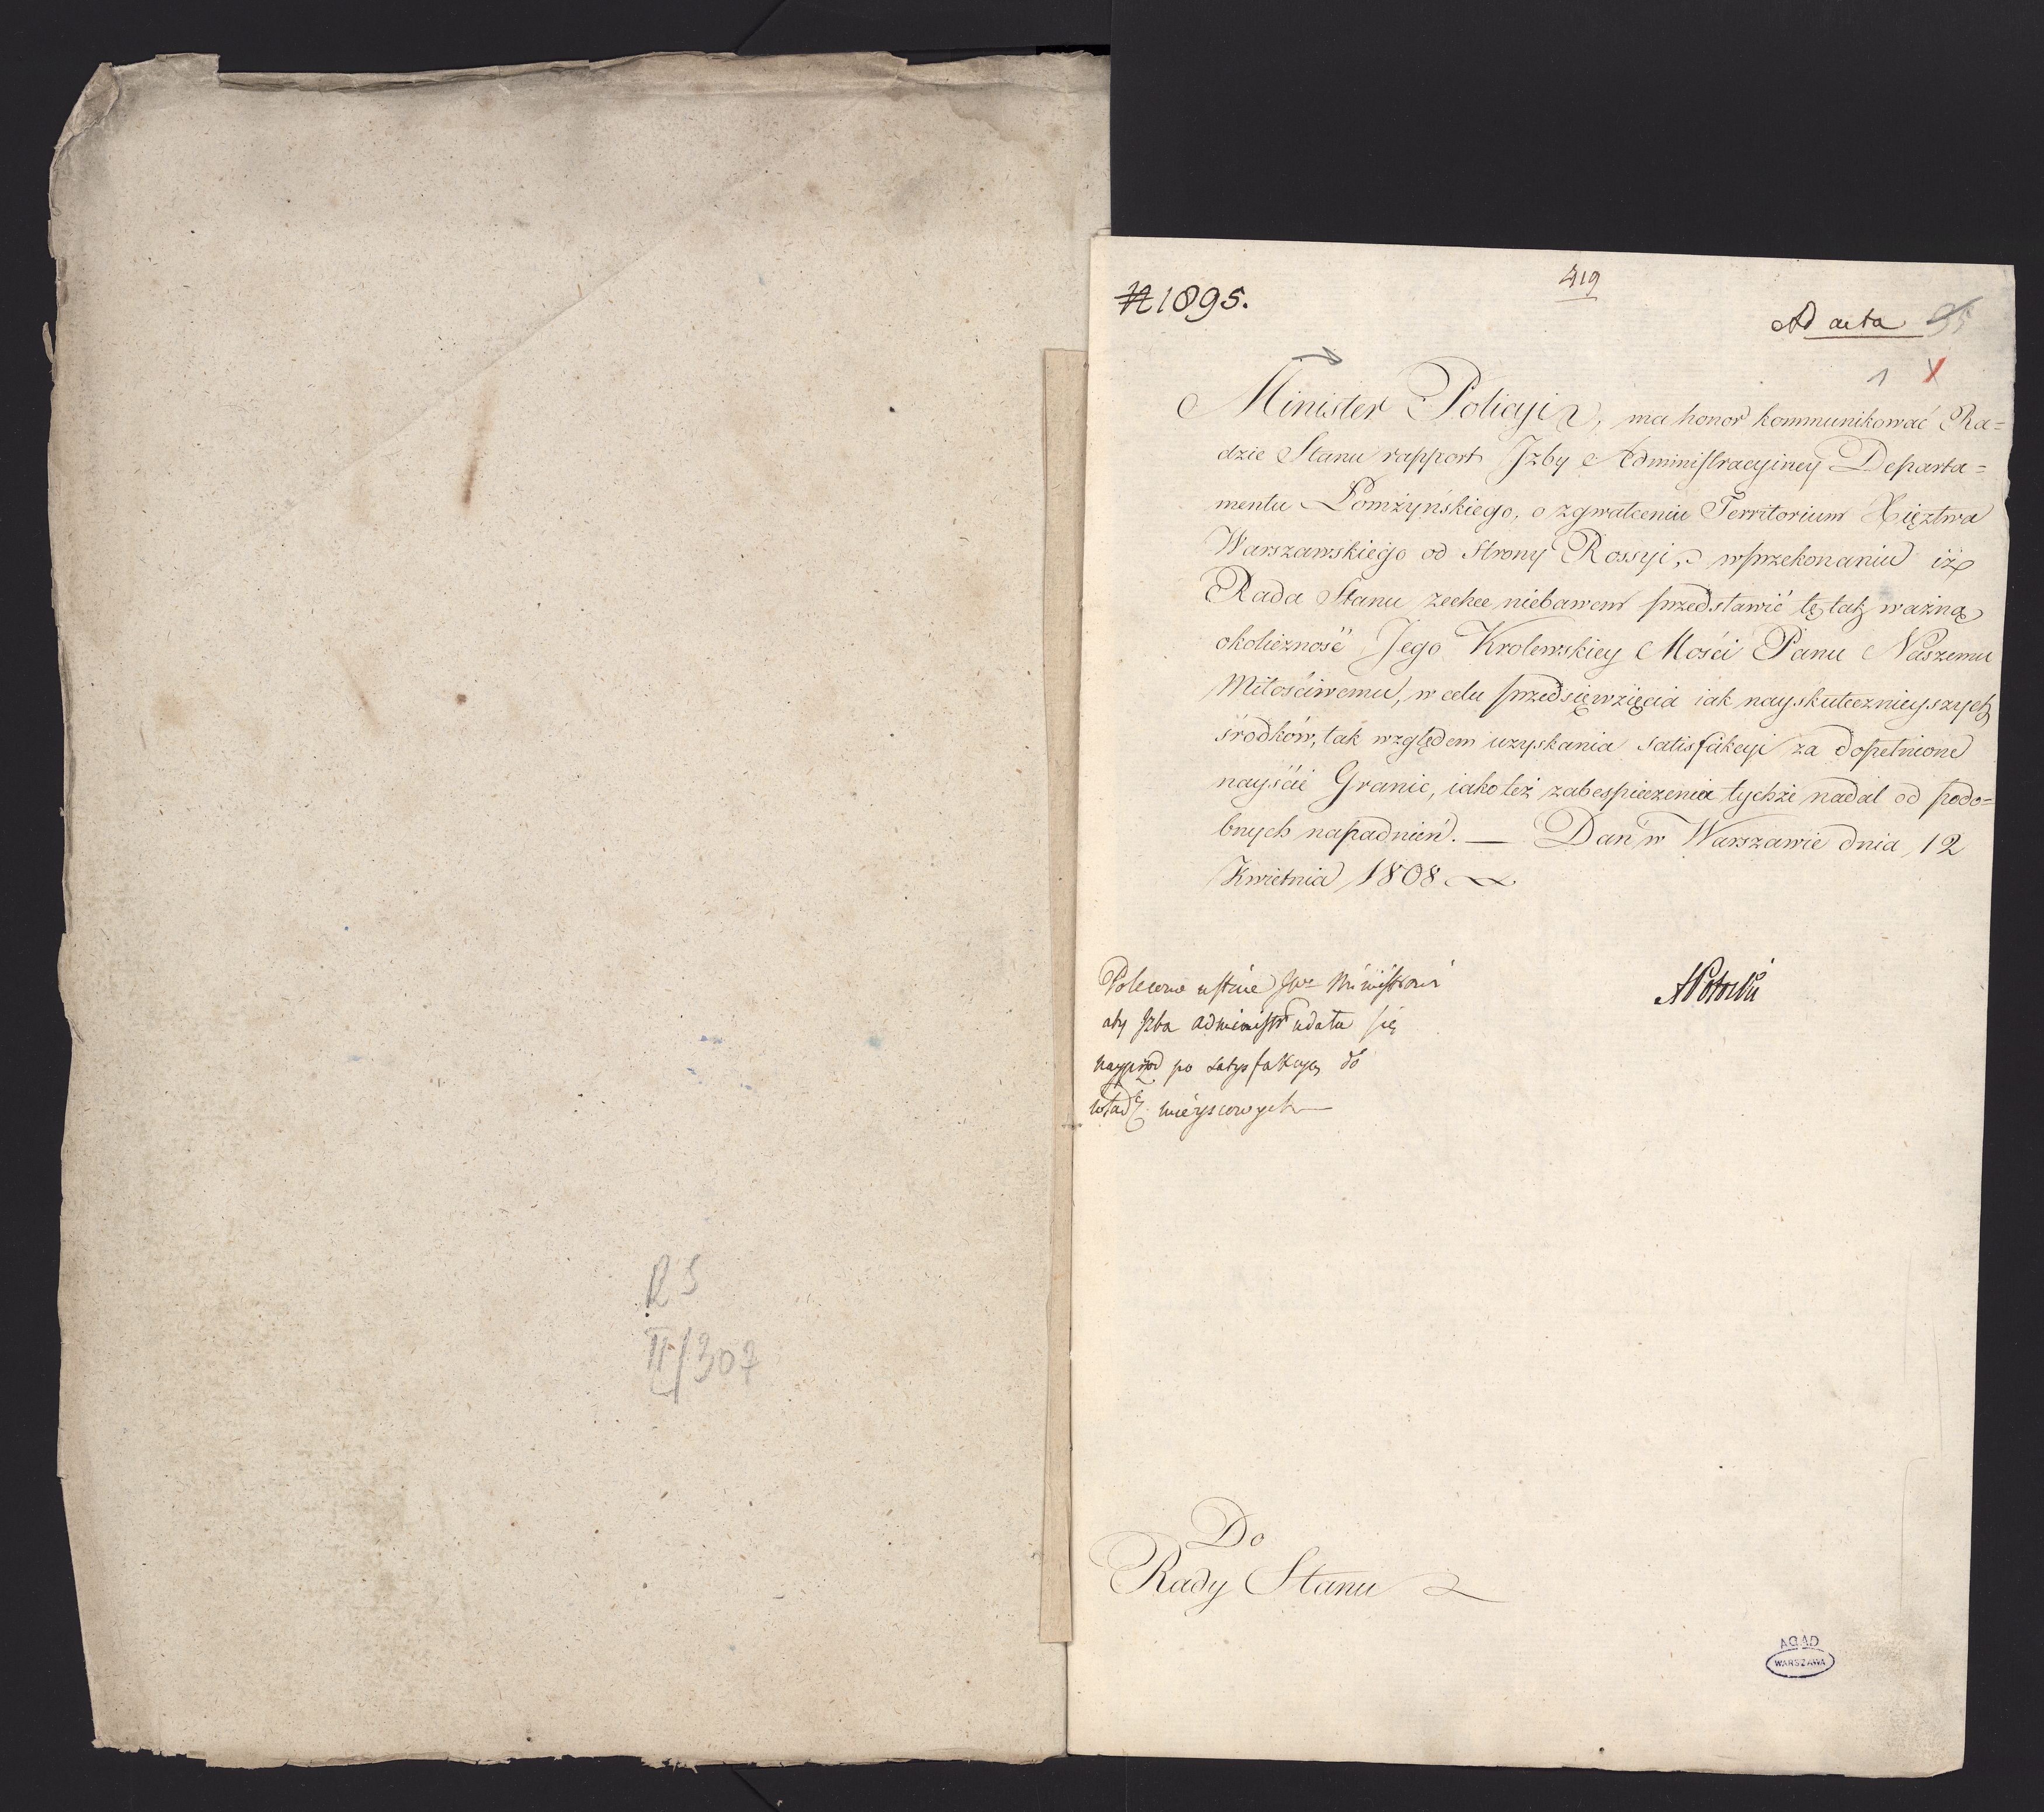 R S
II/307
N 1895.
419
Ad acta 95
1
Minister Policyi, ma honor kommunikować Ra=
dzie Stanu rapport Jzby Administracyiney Departa=
mentu Łomżyńskiego, o zgwałceniu Territorium Xięztwa
Warszawskiego od Strony Rossyi, w przekonaniu iż
Rada Stanu zechce niebawem przedstawić tę tak ważną
okoliczność Jego Krolewskiey Mości Panu Naszemu
Miłościwemu, w celu przedsięwzięcia iak nayskutecznieyszych
środków, tak względem uzyskania satisfakcyi za dopełnione
nayście Granic, iako też zabespieczenia tychże nadal od podo=
bnych napadnień. — Dan w Warszawie dnia 12
Kwietnia 1808
APotocki
Polecono ustnie JWu Ministrowi
aby Jzba administr udała się
nayprzod po satysfakcyą do
władz mieyscowych —
Do
Rady Stanu
AGAD
WARSZAWA